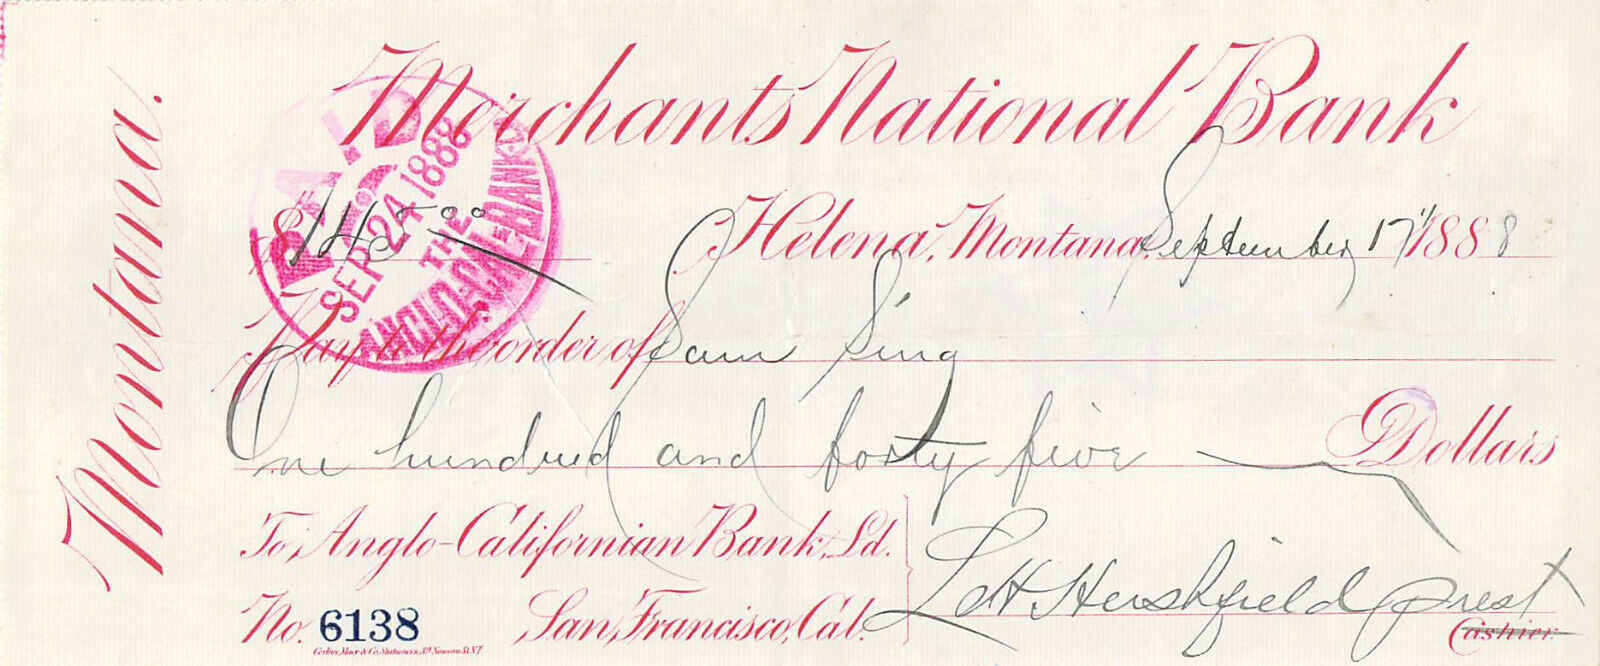 Montana.
Merchants National Bank
$145 00
Helena, Montana, September 17 1888
Pay to the order of Sam Sing
One hundred and forty five Dollars
To, Anglo-Californian Bank, Ld.
San Francisco, Cal.
No. 6138
L H Hershfield prest
Cashier.
PAID
SEP 24 1888
THE
ANGLO-CAL-BANK